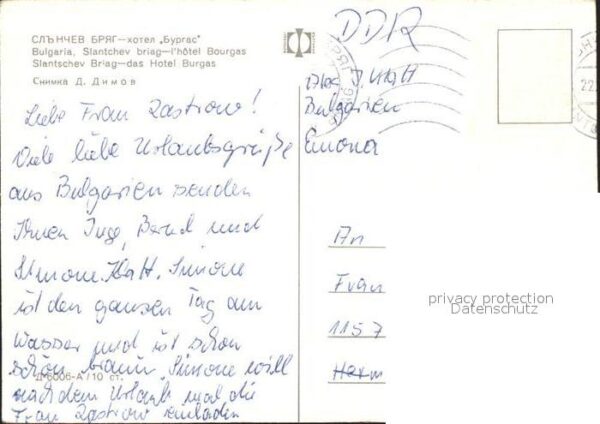 СЛЪНЧЕВ БРЯГ—хотел „Бургас"
Bulgaria, Slantchev briag—l'hôtel Bourgas
Slantschev Briag—das Hotel Burgas
Снимка Д. Димов
Liebe Frau Zastrow!
Viele liebe Urlaubsgrüße
aus Bulgarien senden
Ihnen Inge, Bernd und
Simone Klatt. Simone
ist den ganzen Tag am
Wasser und ist schon
schön braun. Simone will
Д-6006-А/10 ст.
nach dem Urlaub mal die
Frau Zastrow einladen
DDR
J. Klatt
Bulgarien
Emona
An
Frau
1157
Herm
privacy protection
Datenschutz